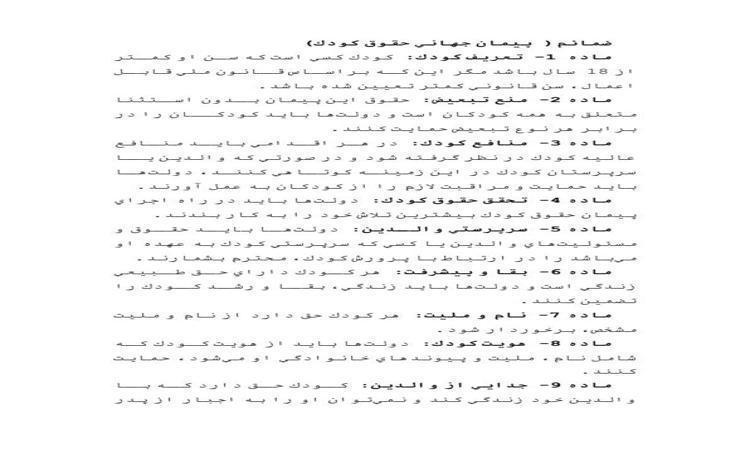 ضمائم ( پيمان جهاني حقوق كودك)
ماده 1- تعريف كودك: كودك كسي است كه سن او كمتر
از 18 سال باشد مگر اين كه بر اساس قانون ملي قابل
اعمال، سن قانوني كمتر تعيين شده باشد.
ماده 2- منع تبعيض: حقوق اين پيمان بدون استثنا
متعلق به همه كودكان است و دولت‌ها بايد كودكان را در
برابر هر نوع تبعيض حمايت كنند.
ماده 3- منافع كودك: در هر اقدامي بايد منافع
عاليه كودك در نظر گرفته شود و در صورتي كه والدين يا
سرپرستان كودك در اين زمينه كوتاهي كنند، دولت‌ها
بايد حمايت و مراقبت لازم را از كودكان به عمل آورند.
ماده 4- تحقق حقوق كودك: دولت‌ها بايد در راه اجراي
پيمان حقوق كودك بيشترين تلاش خود را به كار بندند.
ماده 5- سرپرستي والدين: دولت‌ها بايد حقوق و
مسئوليت‌هاي والدين يا كسي كه سرپرستي كودك به عهده او
مي‌باشد را در ارتباط با پرورش كودك، محترم بشمارند.
ماده 6- بقا و پيشرفت: هر كودك داراي حق طبيعي
زندگي است و دولت‌ها بايد زندگي، بقا و رشد كودك را
تضمين كنند.
ماده 7- نام و مليت: هر كودك حق دارد از نام و مليت
مشخص، برخوردار شود.
ماده 8- هويت كودك: دولت‌ها بايد از هويت كودك كه
شامل نام، مليت و پيوندهاي خانوادگي او مي‌شود، حمايت
كنند.
ماده 9- جدايي از والدين: كودك حق دارد كه با
والدين خود زندگي كند و نمي‌توان او را به اجبار از پدر